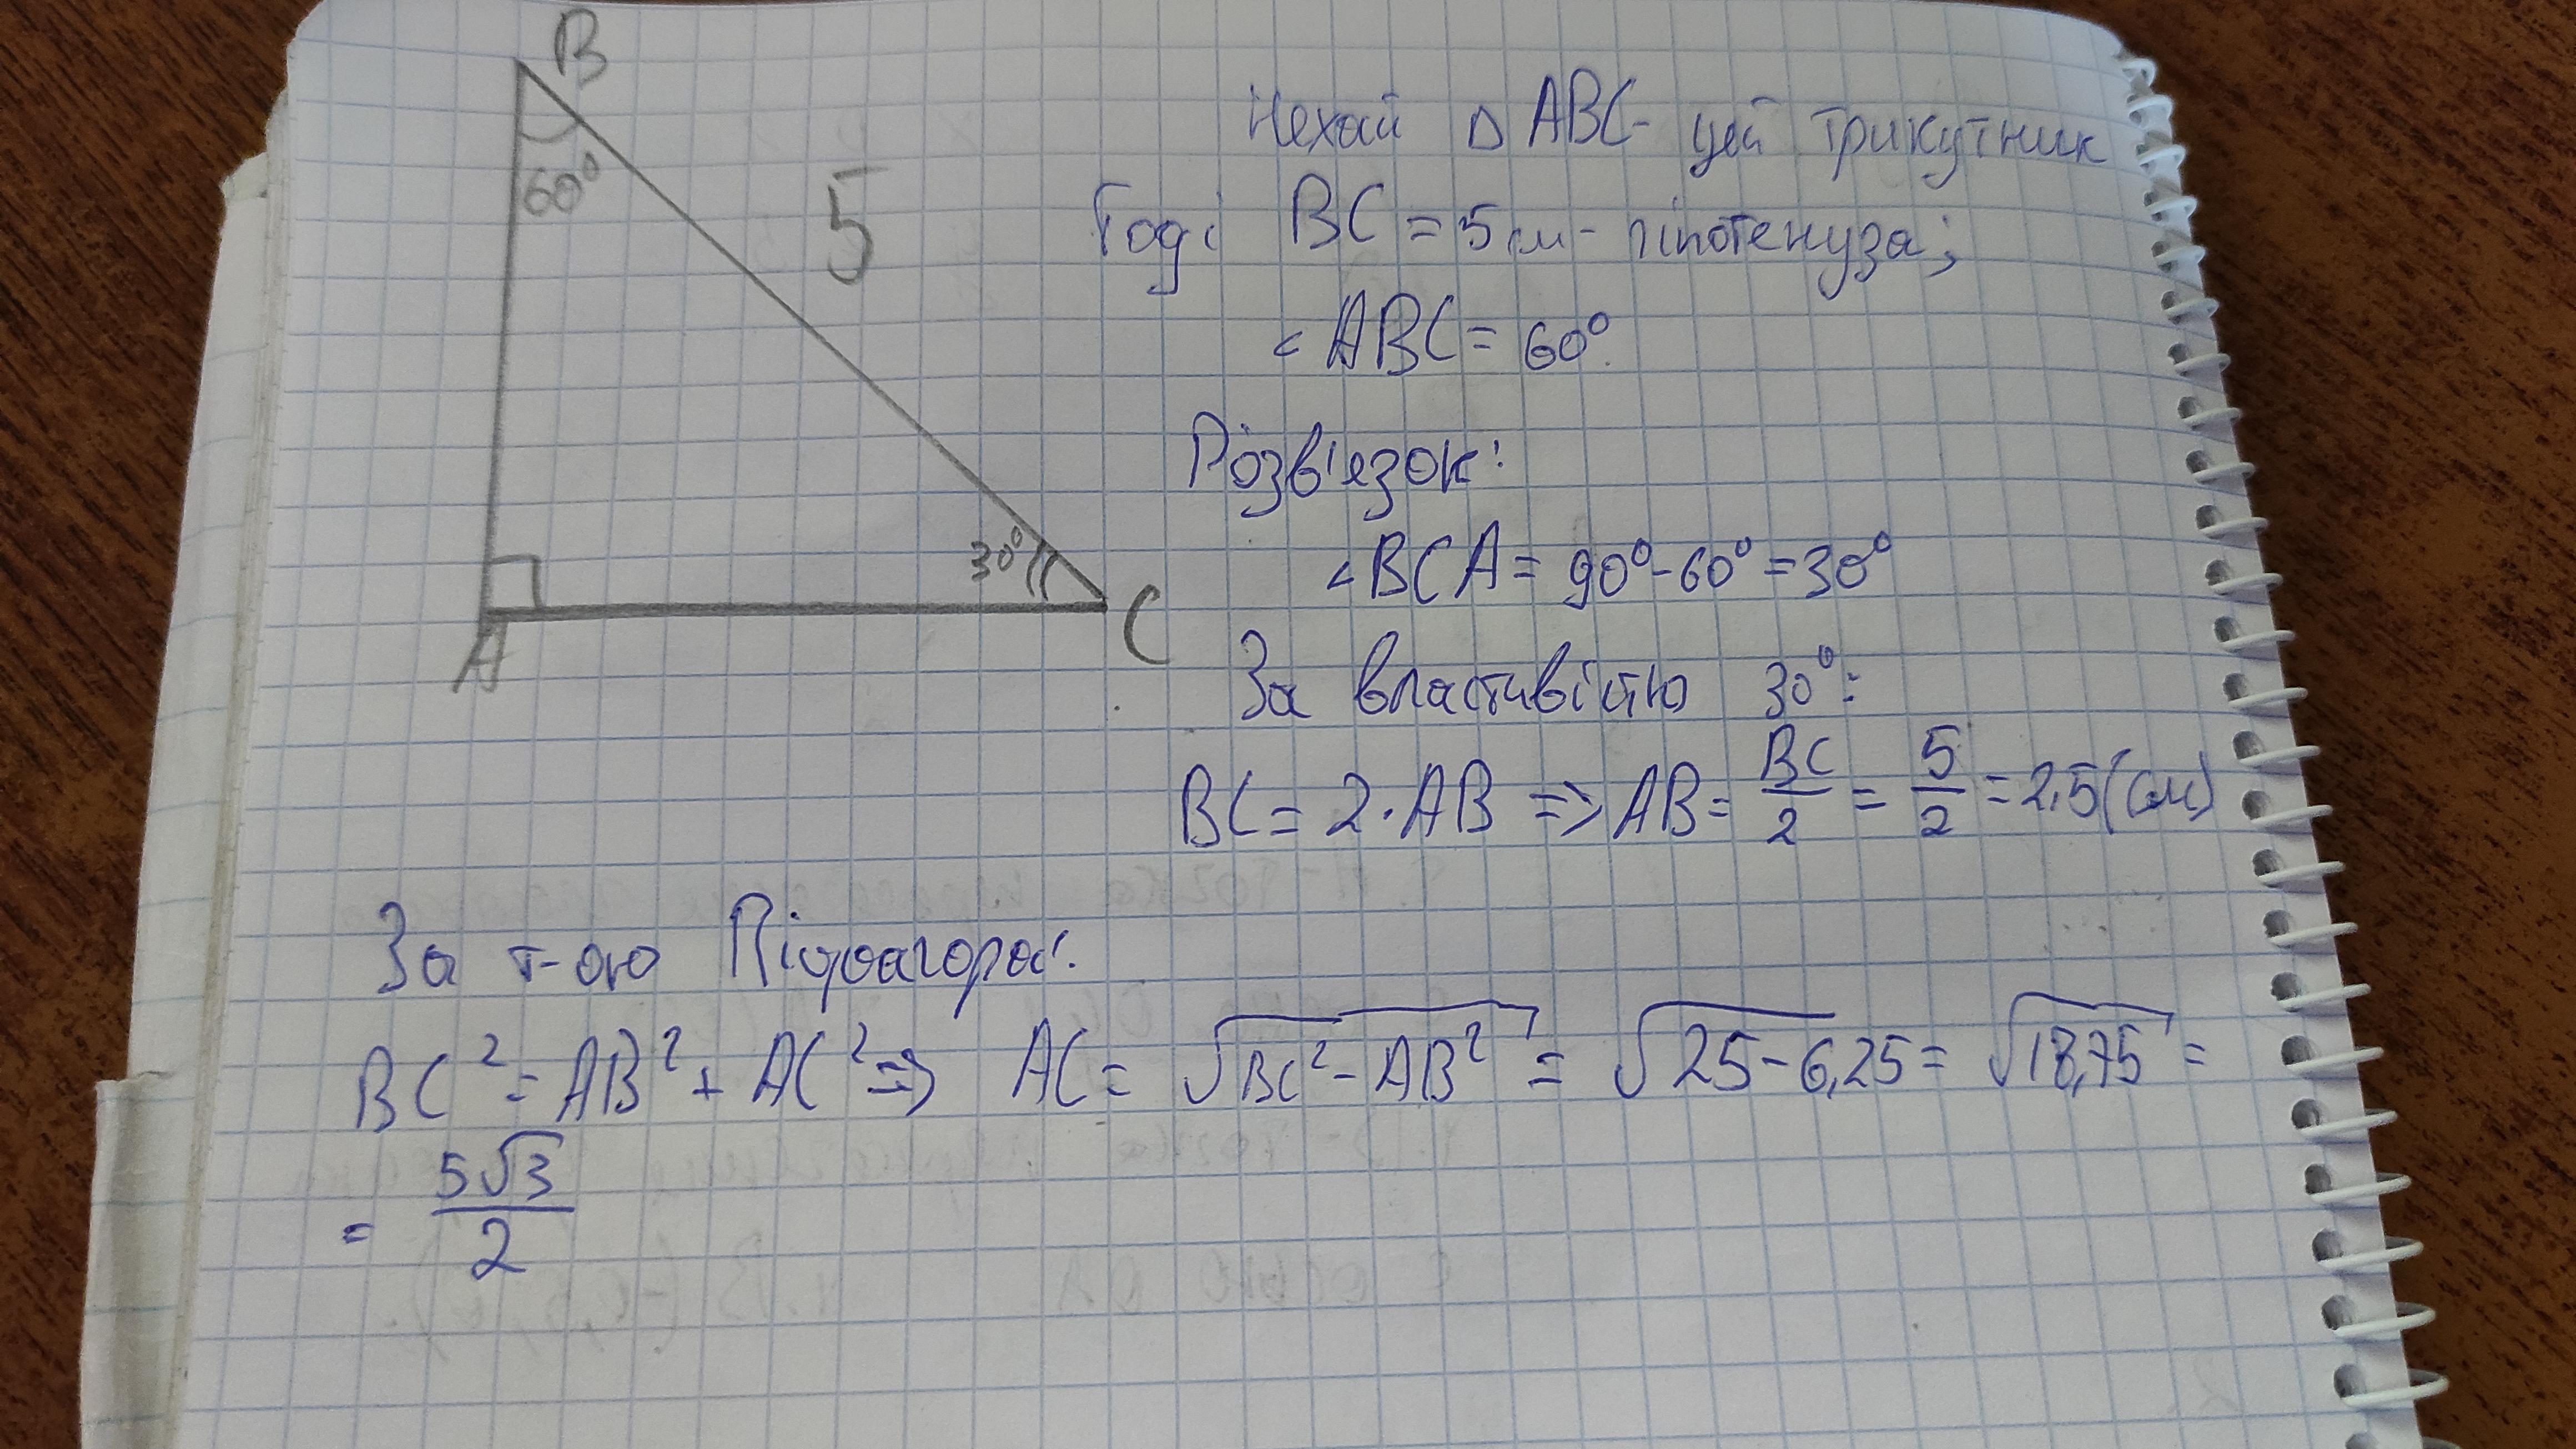 B
60°
5
30°
A
C
Нехай △ ABC - цей трикутник
Тоді BC = 5 см - гіпотенуза;
∠ ABC = 60°.
Розв'язок:
∠BCA = 90° - 60° = 30°
За властивістю 30°:
BC = 2 · AB => AB = BC/2 = 5/2 = 2,5 (см)
За т-ою Піфагора:
BC² = AB² + AC² => AC = √(BC² - AB²) = √(25 - 6,25) = √18,75 =
= 5√3/2